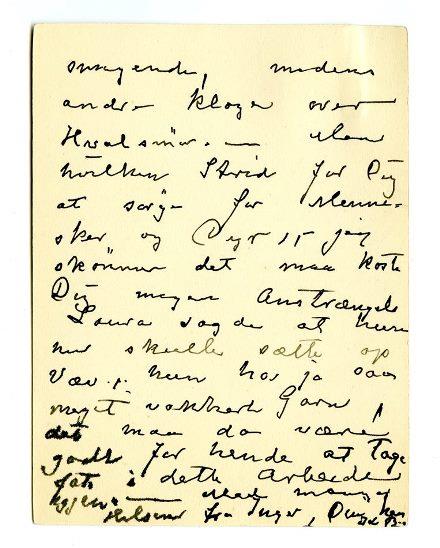 smagende, medens
andre klager over
Hvalsmör. — Men
hvilken Strid for Dig
at sørge for Menne-
sker og Dyr, jeg
skönner det maa koste
Dig megen Anstrængelse
Laura sagde at hun
nu skulde sætte op
Væv, hun har ja saa
meget vakkert Garn,
det maa da være
godt for hende at tage
fat i dette Arbeide
igjen. — Med mange
Hilsener fra Inger, Din